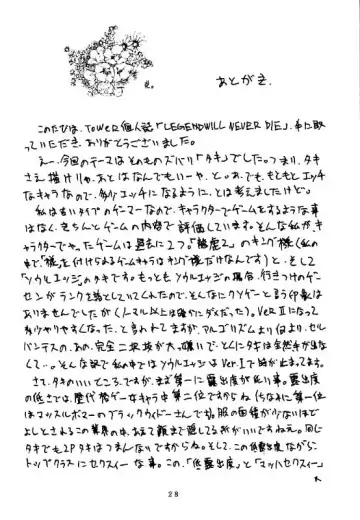 あとがき.
このたびは、TOWER個人誌「LEGEND WILL NEVER DIE」、手に取
っていただき、ありがとうございました。
えー、今回のテーマはそのものズバリ「タキ」でした。つまり、タキ
さえ描けりゃ、あとはなんでもいーや、と。あ、でも、もともとエッチ
なキャラなので、多少エッチになるように、とは考えましたけど。
私は古いタイプのゲーマーなので、キャラクターでゲームをするような事
はなく、きちんとゲームの内容で評価しています。そんな私が、キ
ャラクターでやったゲームは過去に2つ。「餓狼2」のキング様(私の
中で、「様」を付けられるゲームキャラはキング様だけなんです)と、そして
「ソウルエッジ」のタキです。もっとも、ソウルエッジの場合、行きつけのゲー
センがランクを落としていてくれたので、そんなにクソゲーと言う印象は
ありませんでしたが(ノーマル以上は確かにダメだった)。Ver.IIになって
多少やりやすくなった、と言われてますが、アルゴリズムより何より、セル
バンテスの、あの、完全二択攻めが大っ嫌いで、とにかくタキは全然手が出な
くて…。そんな訳で私の中ではソウルエッジはVer.Iで時が止まってます。
さて、タキのいいところですが、まず第一に露出度が低い事。露出度
の低さでは、歴代格ゲーな女キャラ中第二位ですからね(ちなみに第一位
はマッスルボマーのブラックウィドーさんでしょう)。服の面積が少ないほど
よしとされるこの業界の中、あえて顔まで隠してる所がいいですねぇ。同じ
タキでも2Pタキはつまんないですからね。そして、この低露出度ながら、
トップクラスにセクスィーな事。この、「低露出度」と「マッハセクスィー」
28